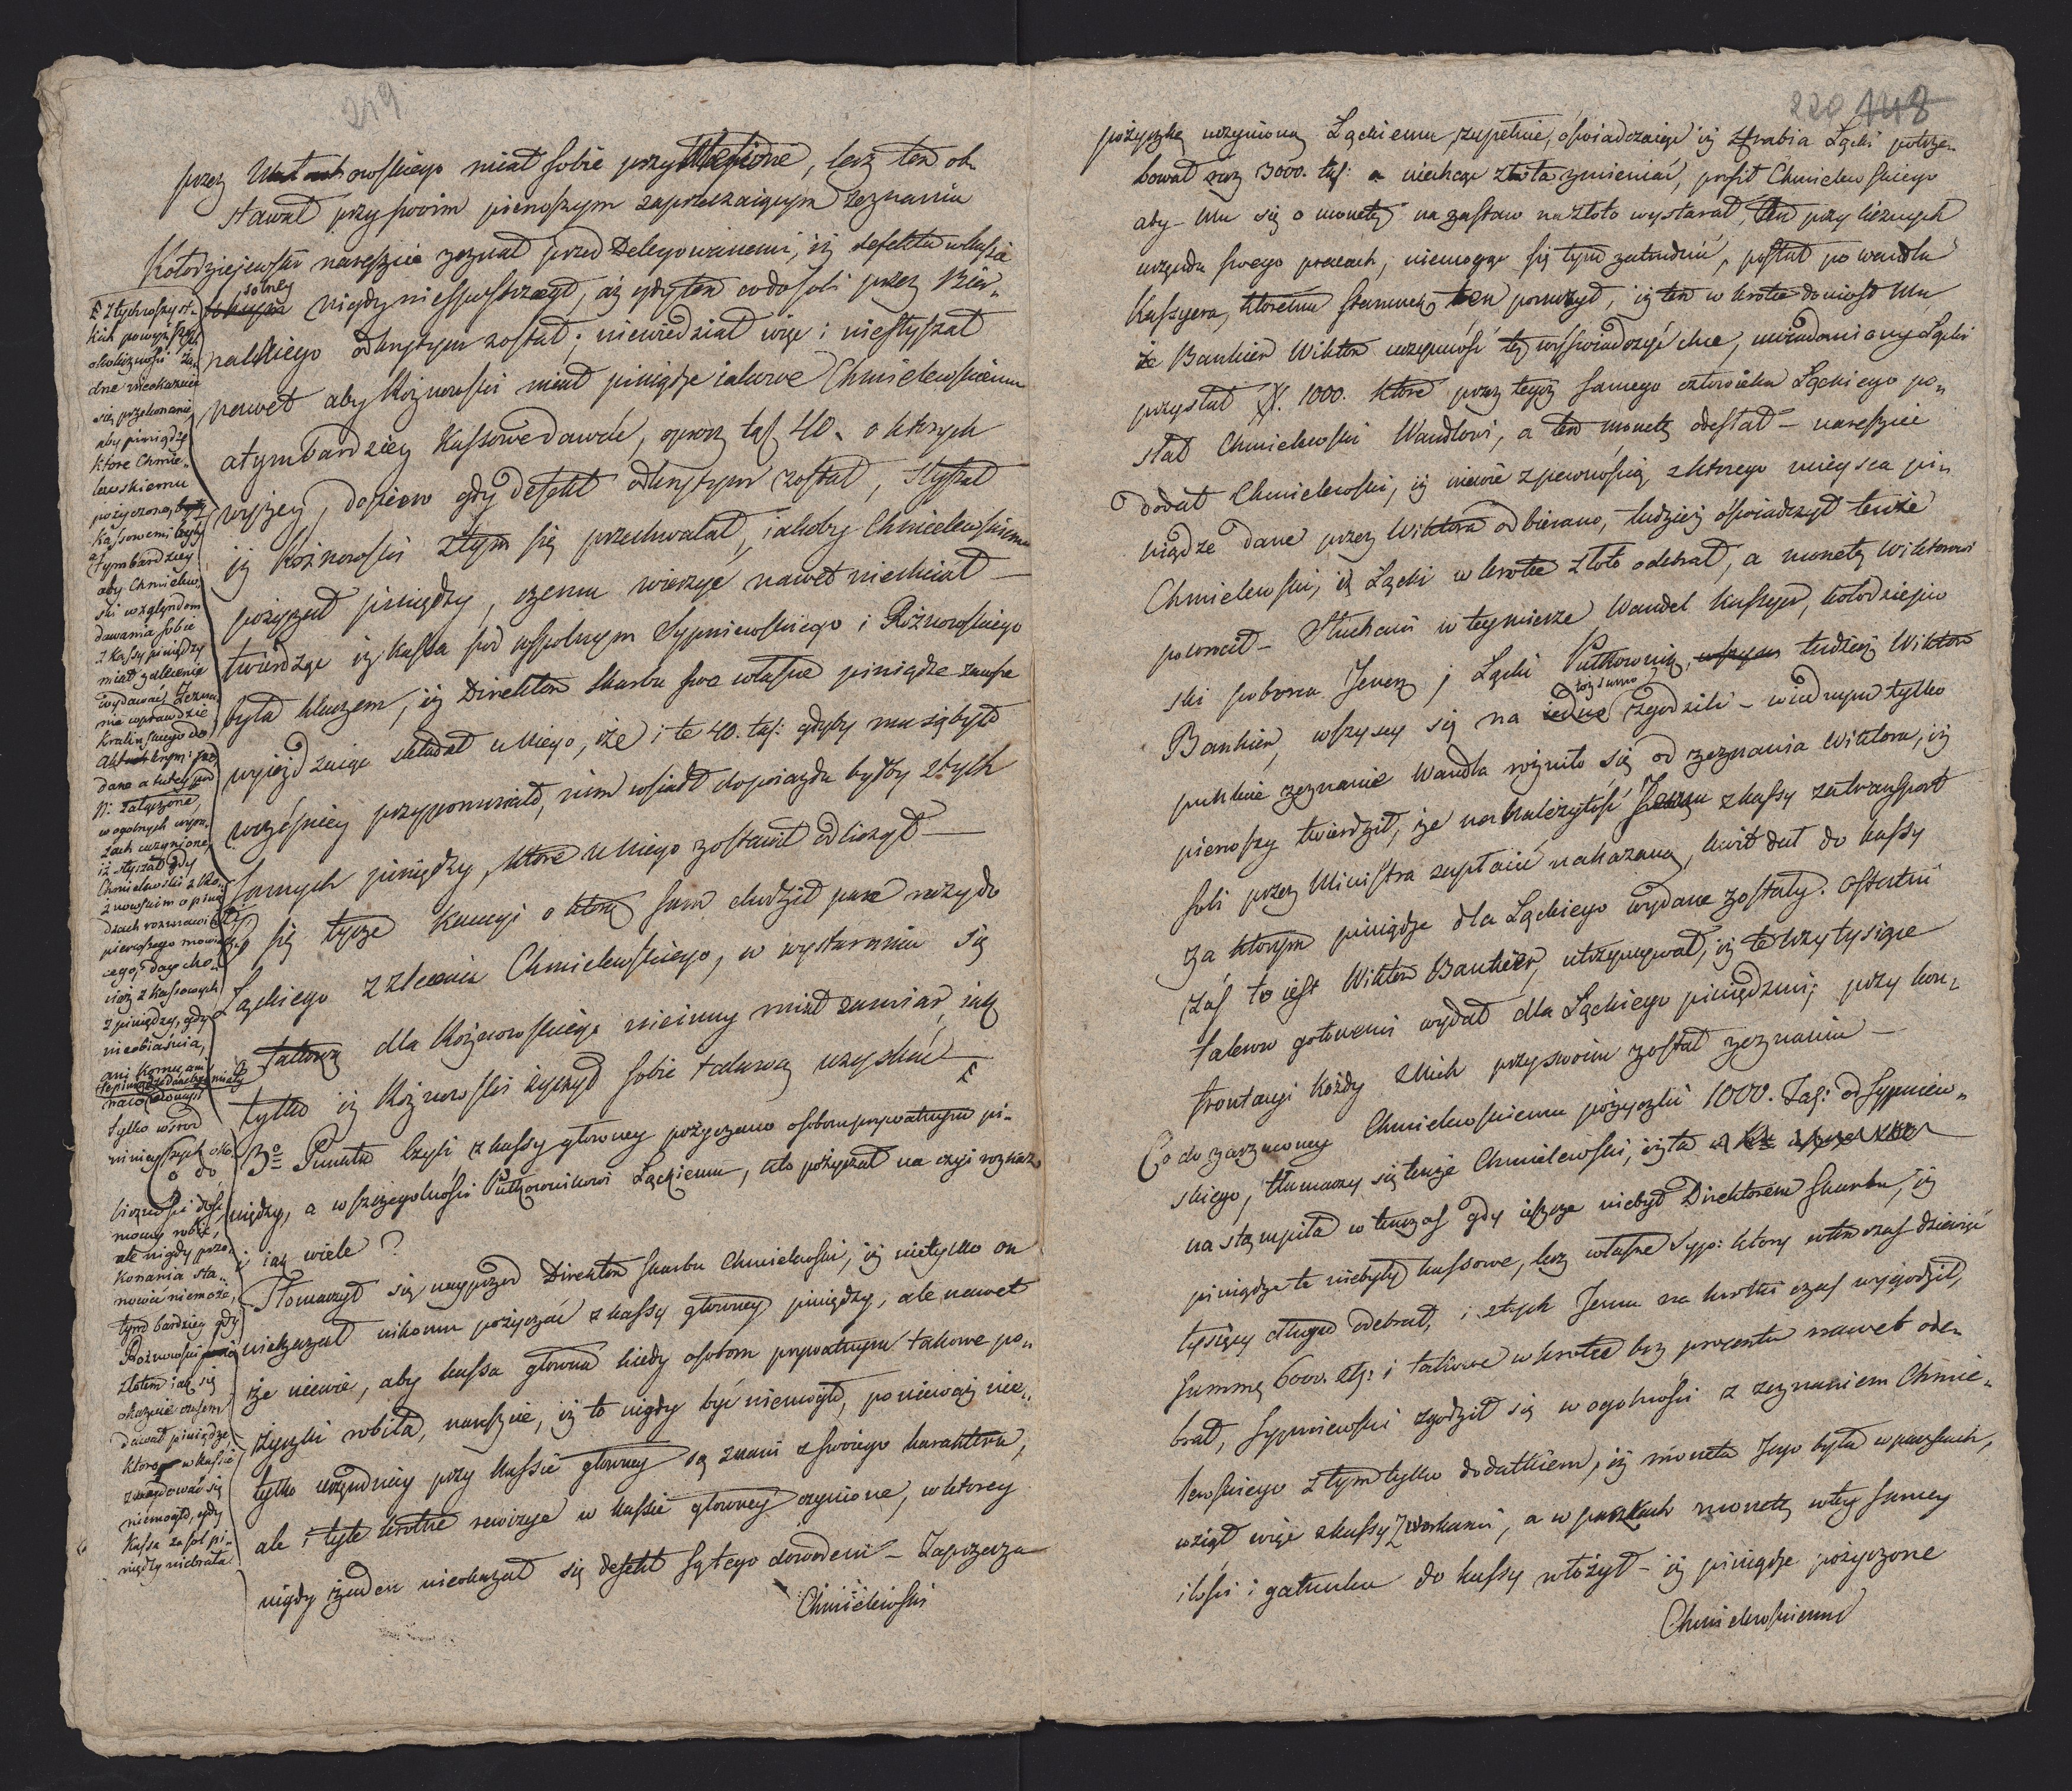 219
przez Mat owskiego miał sobie przytklepione, lecz ten ob
stawał przy swoim pierwszym zaprzeczaiącym zeznaniu
Kołodziejewski nareszcie zeznał przed Delegowanemi, iż defektu w kassie
solney
nigdy niespostrzegł, aż gdy ten co do soli przez Bier„
nackiego odkrytym został; niewiedział więc i niesłyszał
nawet aby Rożnowski miał pieniądze iakowe Chmielewskiemu
a tym bardziey kassowe dawać, oprocz tal: 40. o ktorych
wyżey, dopiero gdy defekt odkrytym został, słyszał
iż Rożnowski z tym się przechwalał, iakoby Chmielewskiemu
pożyczał pieniędzy, czemu wierzyć nawet niechciał —
twierdząc iż kassa pod wspolnym Sypniewskiego i Rożnowskiego
była kluczem, iż Direktor Skarbu swe własne pieniądze zawsze
wyieżdżaiąc składał u Niego, że i te 40. tal: gdyby mu się było
wcześniey przypomniało, nim wsiadł do poiazdu byłby z tych
samych pieniędzy, ktore u Niego zostawił odliczył —
Co się tycze kaucyi o ktorą sam chodził pare razy do
Łąckiego z zlecenia Chmielewskiego, w wystaraniu się
o takową dla Rożnowskiego nieinny miał zamiar, iak
tylko iż Rożnowski życzył sobie takową uzyskać —
3º Punktu Czyli z kassy głowney pożyczano osobom prywatnym pi„
niędzy, a w szczegolności Pułkownikowi Łąckiemu, kto pożyczał na czyi rozkaz
i iak wiele?
Tłomaczył się nayprzod Direktor Skarbu Chmielewski, iż nietylko on
niekazał nikomu pożyczać z kassy głowney pieniędzy, ale nawet
że niewie, aby kassa głowna kiedy osobom prywatnym takowe po„
życzki robiła, nareszcie, iż to nigdy być niemogło, ponieważ nie„
tylko urzędnicy przy kassie głowney są znani z swoiego karakteru,
ale i tyle krotne rewizye w kassie głowney czynione, w ktorey
nigdy żaden nieokazał się defekt są tego dowodem — Zaprzecza
Chmielewski
Z tych wszyst„
kich powyższych
okoliczności ża„
dne nieokazuie
się przekonanie
aby pieniądze
ktore Chmie„
lewskiemu
pożyczono, były
kassowemi
a tym bardziey
aby Chmielew„
ski względem
dawania sobie
z kassy pieniędzy
miał zalecenie
wydawać, Zezna„
nie wprawdzie
Kralinskiego do
podane a tutey pod
N: załączone,
w ogolnych wyra„
zach uczynione,
iż słyszał gdy
Chmielewski z Ro„
żnowskim o pienię„
dzach rozmawiali
pierwszego mowią„
cego, day cho„
ciaż z kassowych
pieniędzy, gdy
nieobiaśnia,
ani komu ani
te pieniądze dane być miały
tylko wśrod
ninieyszych oko„
liczności do„
mowy robić,
ale nigdy prze„
konania sta„
nowić niemoże,
tym bardziey gdy
Rożnowski
złotem iak się
okazuie czasem
dawał pieniądze
ktore w kassie
znaydować się
niemogło, gdy
Kassa za sol pi„
niędzy niebrała
220 148
pożyczkę uczynioną Łąckiemu zupełnie, oświadczaiąc iż Hrabia Łącki potrze„
bował raz 3000. tal: a niechcąc złota zmieniać, prosił Chmielewskiego
aby Mu się o monetę na zastaw na złoto wystarał, ten przy licznych
urzędu swego pracach, niemogąc się tym zatrudnić, posłał po Wandla
Kassyera, ktoremu staranie ten poruczył, iż ten w krotce doniosł Mu
że Bankier Wiktor uczynność tę wyświadczyć chce, uwiadomiony Łącki
przysłał # 1000. ktore przez tegoż samego człowieka Łąckiego po„
słał Chmielewski Wandlowi, a ten monetę odesłał — nareszcie
dodał Chmielewski, iż niewie z pewnością z ktorego mieysca pi„
niądze dane przez Wiktora odbierano, tudzież oświadczył tenże
Chmielewski, iż Łącki w krotce złoto odebrał, a monetę Wiktorowi
powrocił — Słuchani w tey mierze Wandel Kassyer, Kołodziejew„
ski poborca Jener: i Łącki Pułkownik, tudzież Wiktor
Bankier, wszyscy się na toż samo zgodzili — wiednym tylko
punkcie zeznanie Wandla rożniło się od zeznania Wiktora, iż
pierwszy twierdził, że na należytość Jemu z kassy za transport
soli przez Ministra zapłacić nakazaną, kwit dał do kassy
za ktorym pieniądze dla Łąckiego wydane zostały. Ostatni
zaś to iest Wiktor Bankier, utrzymywał, iż te trzy tysiące
talerow gotowemi wydał dla Łąckiego pieniędzmi; przy kon„
frontacyi każdy z Nich przy swoim został zeznaniu —
Co do zarzuconey Chmielewskiemu pożyczki 1000. Tal: od Sypniew„
skiego, tłumaczy się tenże Chmielewski, iż ta
nastąpiła w tenczas gdy ieszcze niebył Direktorem Skarbu, iż
pieniądze te niebyły kassowe, lecz własne Syp: ktory wten czas dziewięć
tysięcy długu odebrał, i z tych Jemu na krotki czas wygodził,
summę 6000. zł: i takowe w krotce bez procentu nawet ode„
brał, Sypniewski zgodził się w ogolności z zeznaniem Chmie„
lewskiego z tym tylko dodatkiem, iż moneta Jego była w paczkach,
wziął więc z kassy z workami, a w paczkach monetę wtey samey
ilości i gatunku do kassy włożył — iż pieniądze pożyczone
Chmielewskiemu